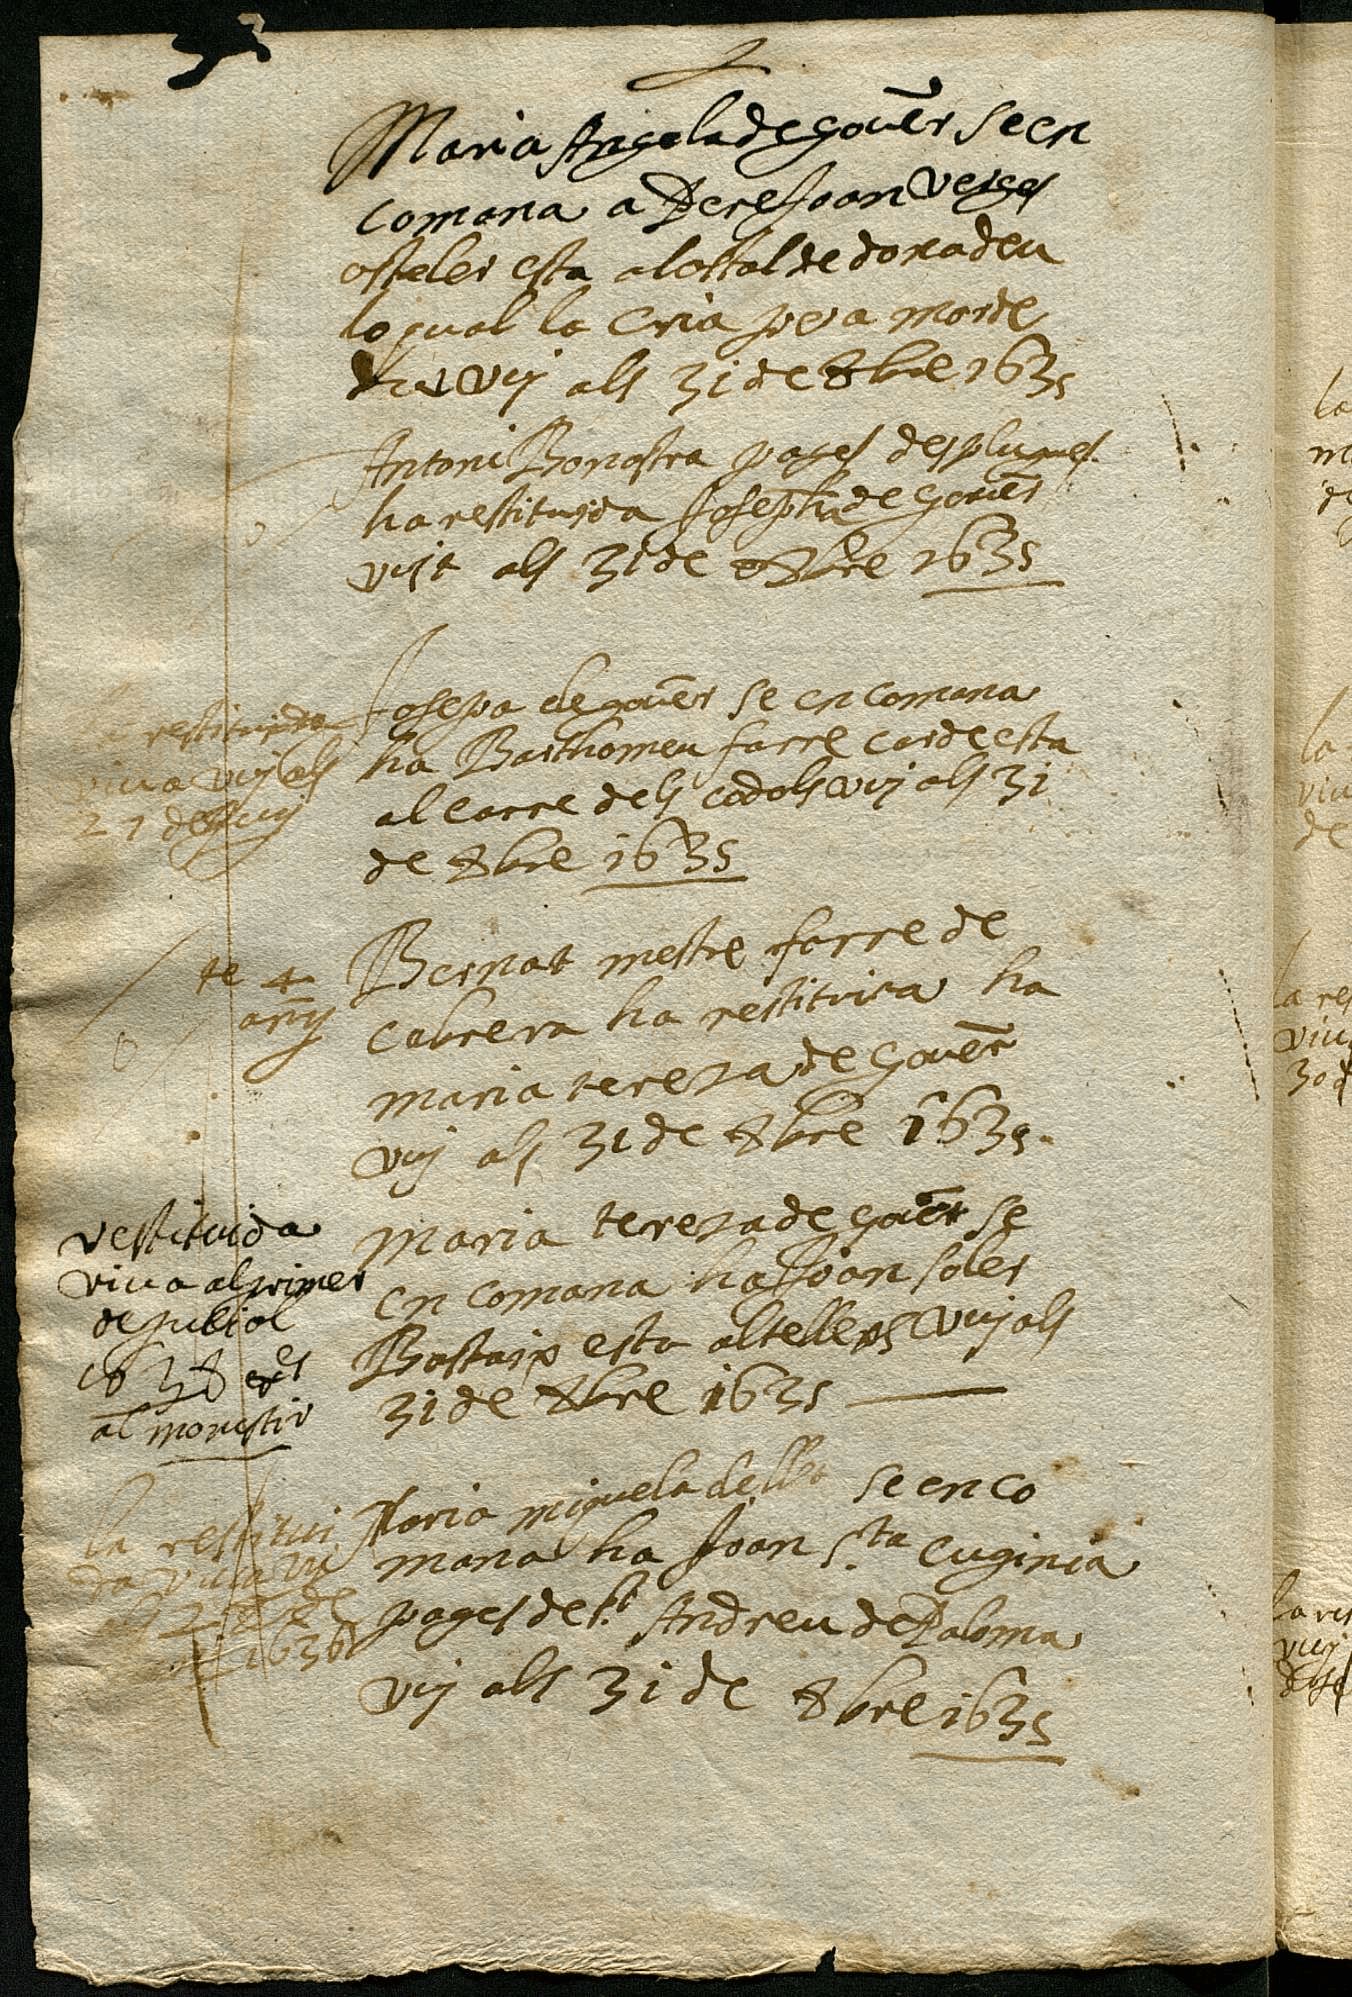 Maria Angela de gouēr se en
comana a Pere Joan Verges
osteler esta al ostal de donadeu
lo qual la cria per a mor de
deu vuy als 31 de 8bre 1635
Antoni Bonastra pages desplugues
ha restituida Josepha de gouēr
vuit als 31 de 8bre 1635
restituida
viva vuy als
27 de
Josepa de gouēr se en comana
ha Barthomeu farre corde esta
al carre dels codols vuy als 31
de 8bre 1635
te 4
anys
Bernat mestre farre de
cabrera ha restituira ha
maria tereza de gouēr
vuy als 31 de 8bre 1635
restituida
viva al primer
de juliol
1638 es
al monestir
maria tereza de gouēr se
en comana ha Joan soler
Bastaix esta al tellers vuy als
31 de 8bre 1635
la restitui
da viva vuy
als 28 de
1636
Maria miquela de se en co
mana ha Joan Sta eugenia
pages de St Andreu de Paloma
vuy als 31 de 8bre 1635
la res
viu
30 d